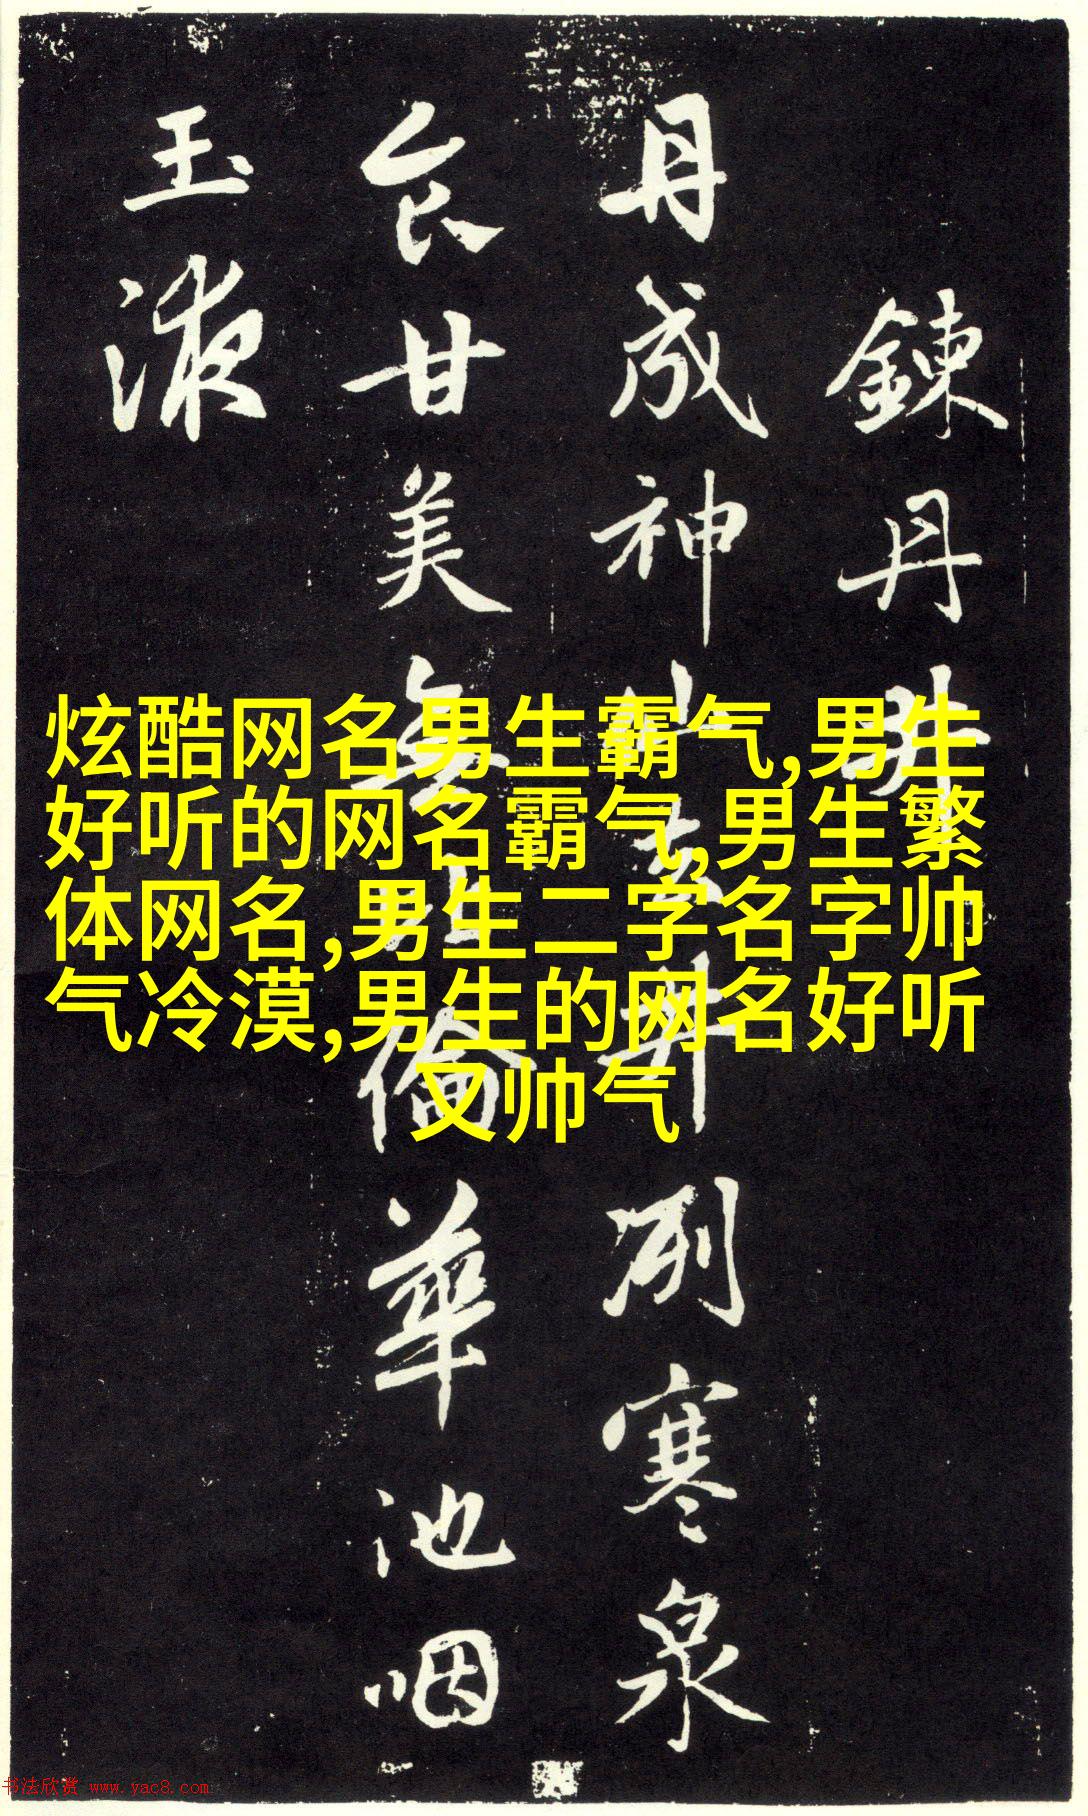 鍊丹井
丹成神仙去井冽寒泉
食甘美無比倫華池咽
玉液
炫酷网名男生霸气,男生
好听的网名霸气,男生繁
体网名,男生二字名字帅
气冷漠,男生的网名好听
又帅气
书法欣赏 www.yac8.com